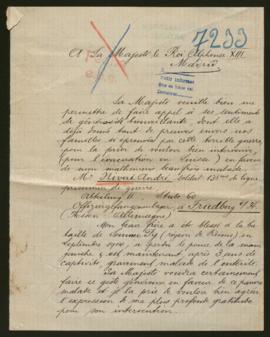 7233
A Sa Majesté le Roi Alphonse XIII
Madrid
Sa Majesté veuille bien me
permettre de faire appel à ses sentiments
de générosité bienveillante dont elle a
déjà donné tant de preuves envers nos
familles si éprouvées par cette terrible guerre
pour la prier de vouloir bien
(pour l'internation en Suisse) en faveur
de mon malheureux beau frère malade
Mr André, Soldat de ligne
prisonnier de guerre
Abteilung II Stube 60
à Friedberg
(Hessen Allemagne)
Mon beau frère a été blessé à la
bataille de (région de Reims) en
Septembre 1914, a perdu le pouce de la main
gauche, et est maintenant, après 3 ans de
captivité gravement malade de l'
Sa Majesté voudra certainement
faire ce geste généreux en faveur de ce pauvre
malade et je la prie de vouloir bien agréer
l'expression de ma plus profonde gratitude
pour son intervention.